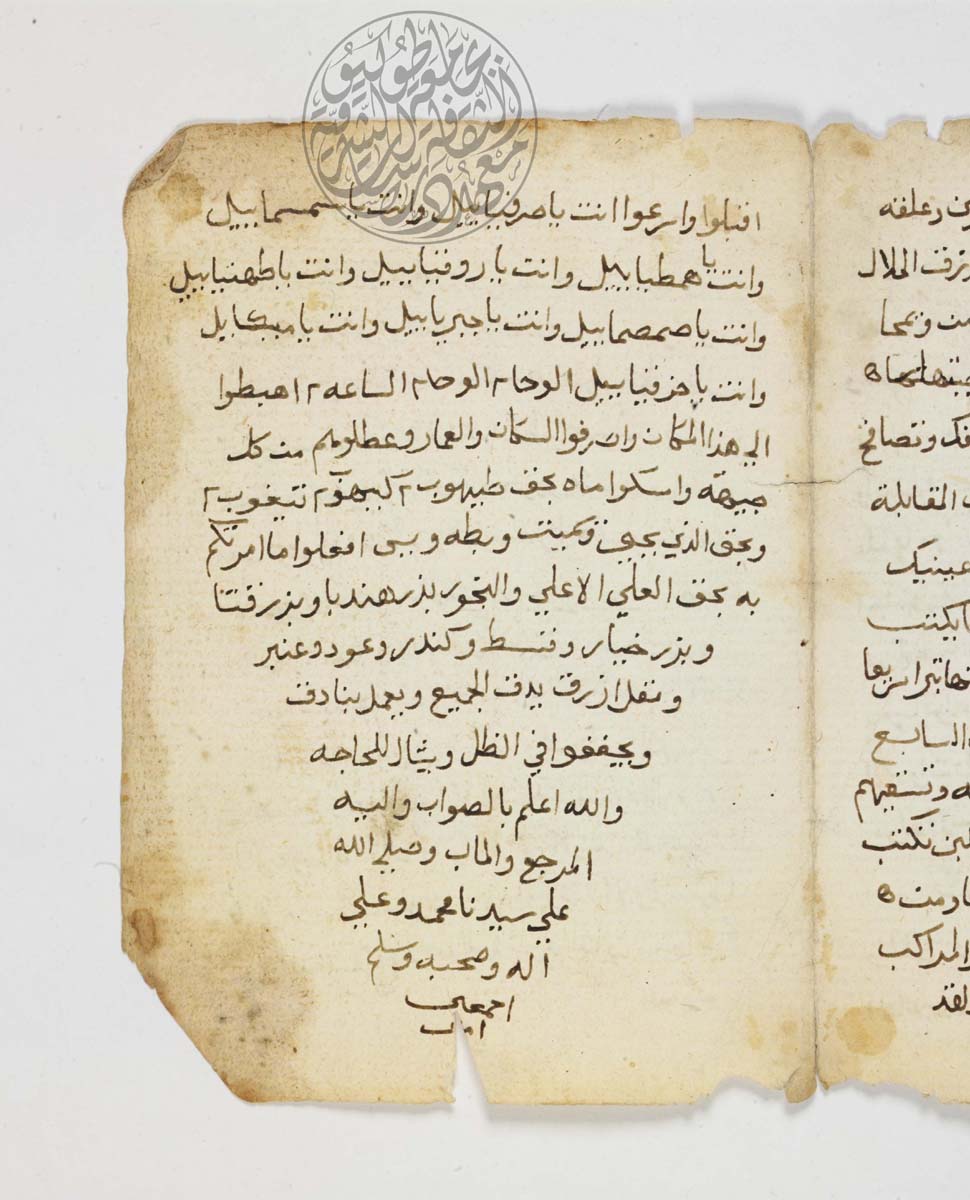 اقبلوا واسرعوا انت ياصرفيابيل وانت ياسمسمابيل
وانت يا همطيابيل وانت ياروفيابيل وانت ياطهتيابيل
وانت ياصمصمابيل وانت ياجبريابيل وانت ياميكايل
وانت ياحزفيابيل الوحا٢ الوحا٢ الساعه٢ اهبطوا
الي هذا المكان واصرفوا السكان والعمار وعطلوهم من كل
جيهة واسكوا ماه بحق طيهوب٢ كيهوب٢
وبحق الذي يحيى ويميت وبطه ويس افعلوا ما امرتكم
به بحق العلي الاعلي والبخور بذر هندبا وبذر قتا
وبذر خيار وقسط وكندر وعود وعنبر
ومقل ازرق يدق الجميع ويعمل بنادق
ويجففوا في الظل ويشال للحاجه
والله اعلم بالصواب واليه
المرجع والماب وصلي الله
علي سيدنا محمد وعلي
اله وصحبه وسلم
اجمعين
امين
وعلفه
الحلال
ويمحا
فك وتصافح
المقابلة
عينيك
يكتب
السابع
وتسقيهم
تكتب
والمراكب
لقد